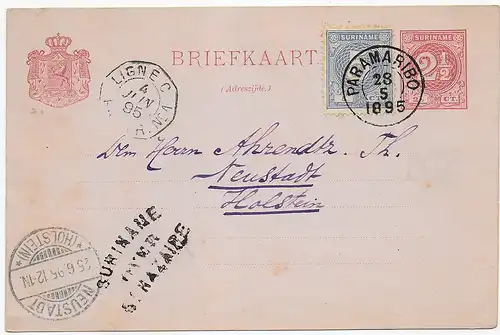 SURINAME
BRIEFKAART
(Adreszijde.)
SURINAME
2½
CT. CT.
PARAMARIBO
28
5
1895
LIGNE C
4
JUIN
95
Dem Herrn Ahrendtz. Th.
Neustadt
Holstein
SURINAME
OVER
ST NAZAIRE
NEUSTADT
*(HOLSTEIN)*
25.6.95.12-1N.